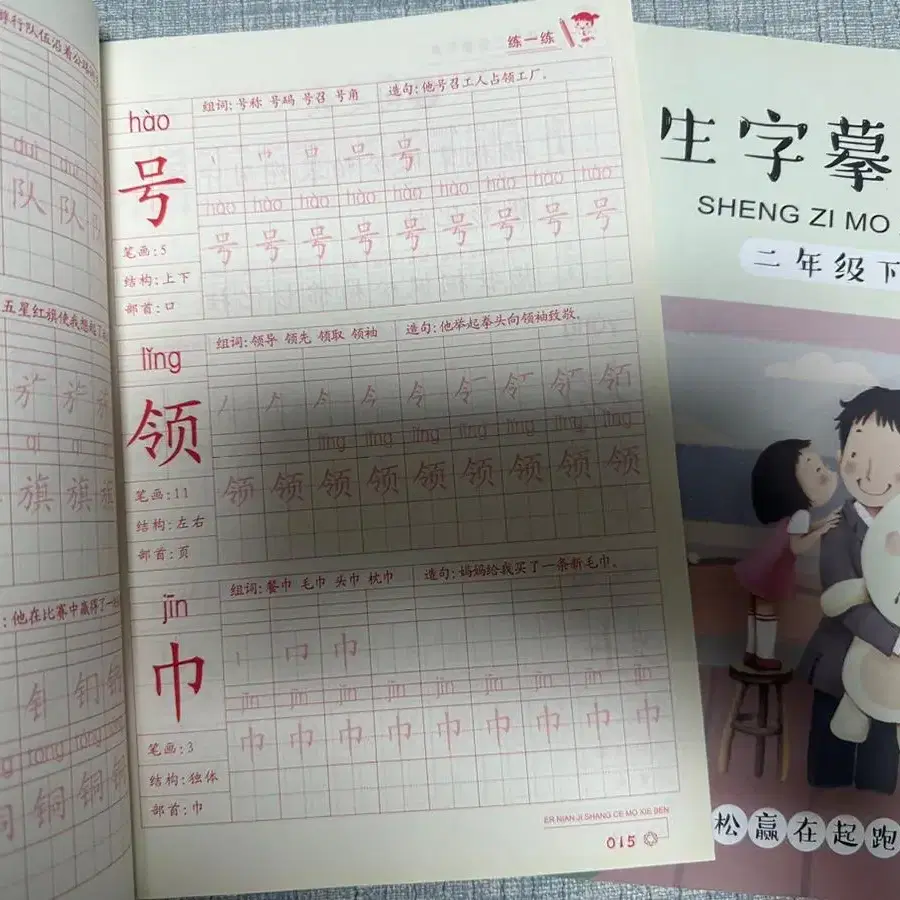 队 队 队
五星红旗使我想起了
旗 旗 旗
:他在比赛中赢得了一
钅 钔 铜
铜 铜 铜
练一练
hào
组词:号称 号码 号召 号角 造句:他号召工人占领工厂。
号
号
hào hào hào hào hào hào hào hào hào
号 号 号 号 号 号 号 号 号
笔画:5
结构:上下
部首:口
lǐng
组词:领导 领先 领取 领袖 造句:他举起拳头向领袖致敬。
领
lǐng lǐng lǐng lǐng lǐng lǐng lǐng
领 领 领 领 领 领 领 领 领
笔画:11
结构:左右
部首:页
jīn
组词:餐巾 毛巾 头巾 枕巾 造句:妈妈给我买了一条新毛巾。
巾
丨 冂 巾
jīn jīn jīn jīn jīn jīn jīn jīn jīn
巾 巾 巾 巾 巾 巾 巾 巾 巾
笔画:3
结构:独体
部首:巾
ER NIAN JI SHANG CE MO XIE BEN
015
生字摹
SHENG ZI MO
二年级下
松赢在起跑